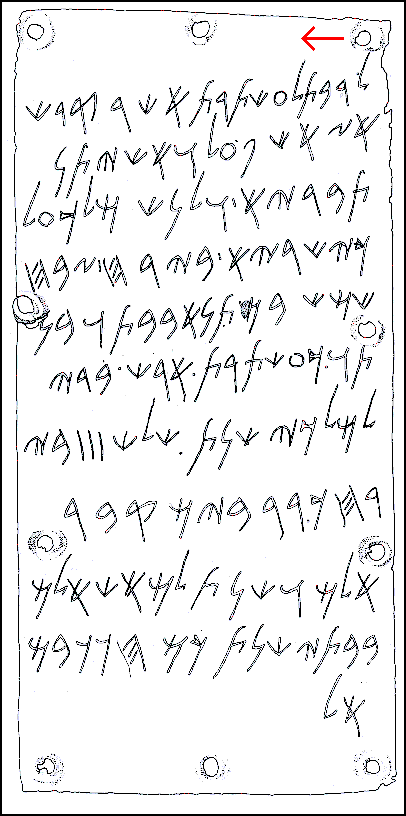 𐤋𐤓𐤁𐤕 𐤋𐤏𐤔𐤕𐤓𐤕 𐤀𐤔𐤓 𐤒𐤃𐤔
𐤀𐤆 𐤀𐤔 𐤐𐤏𐤋 𐤅𐤀𐤔 𐤉𐤕𐤍
𐤕𐤁𐤓𐤉𐤀 . 𐤅𐤋𐤍𐤔 𐤌𐤋𐤊 𐤏𐤋
𐤊𐤉𐤔𐤓𐤉𐤀 . 𐤁𐤉𐤓𐤇 . 𐤆𐤁𐤇
𐤔𐤌𐤔 𐤁𐤌𐤕𐤍 𐤀𐤁𐤁𐤕 𐤅𐤁𐤍
𐤕𐤅 . 𐤊𐤏𐤔𐤕𐤓𐤕 . 𐤀𐤓𐤔 . 𐤁𐤃𐤉
𐤋𐤌𐤋𐤊𐤉 𐤔𐤍𐤕 . 𐤔𐤋𐤔 𐤖𐤖𐤖 𐤁𐤉
𐤓𐤇 𐤊𐤓𐤓 . 𐤁𐤉𐤌 𐤒𐤁𐤓
𐤀𐤋𐤌 𐤅𐤔𐤍𐤕 𐤋𐤌𐤀𐤔 𐤀𐤋𐤌
𐤁𐤁𐤕𐤉 𐤔𐤍𐤕 𐤊𐤌 𐤄𐤊𐤊𐤁𐤌
𐤀𐤋